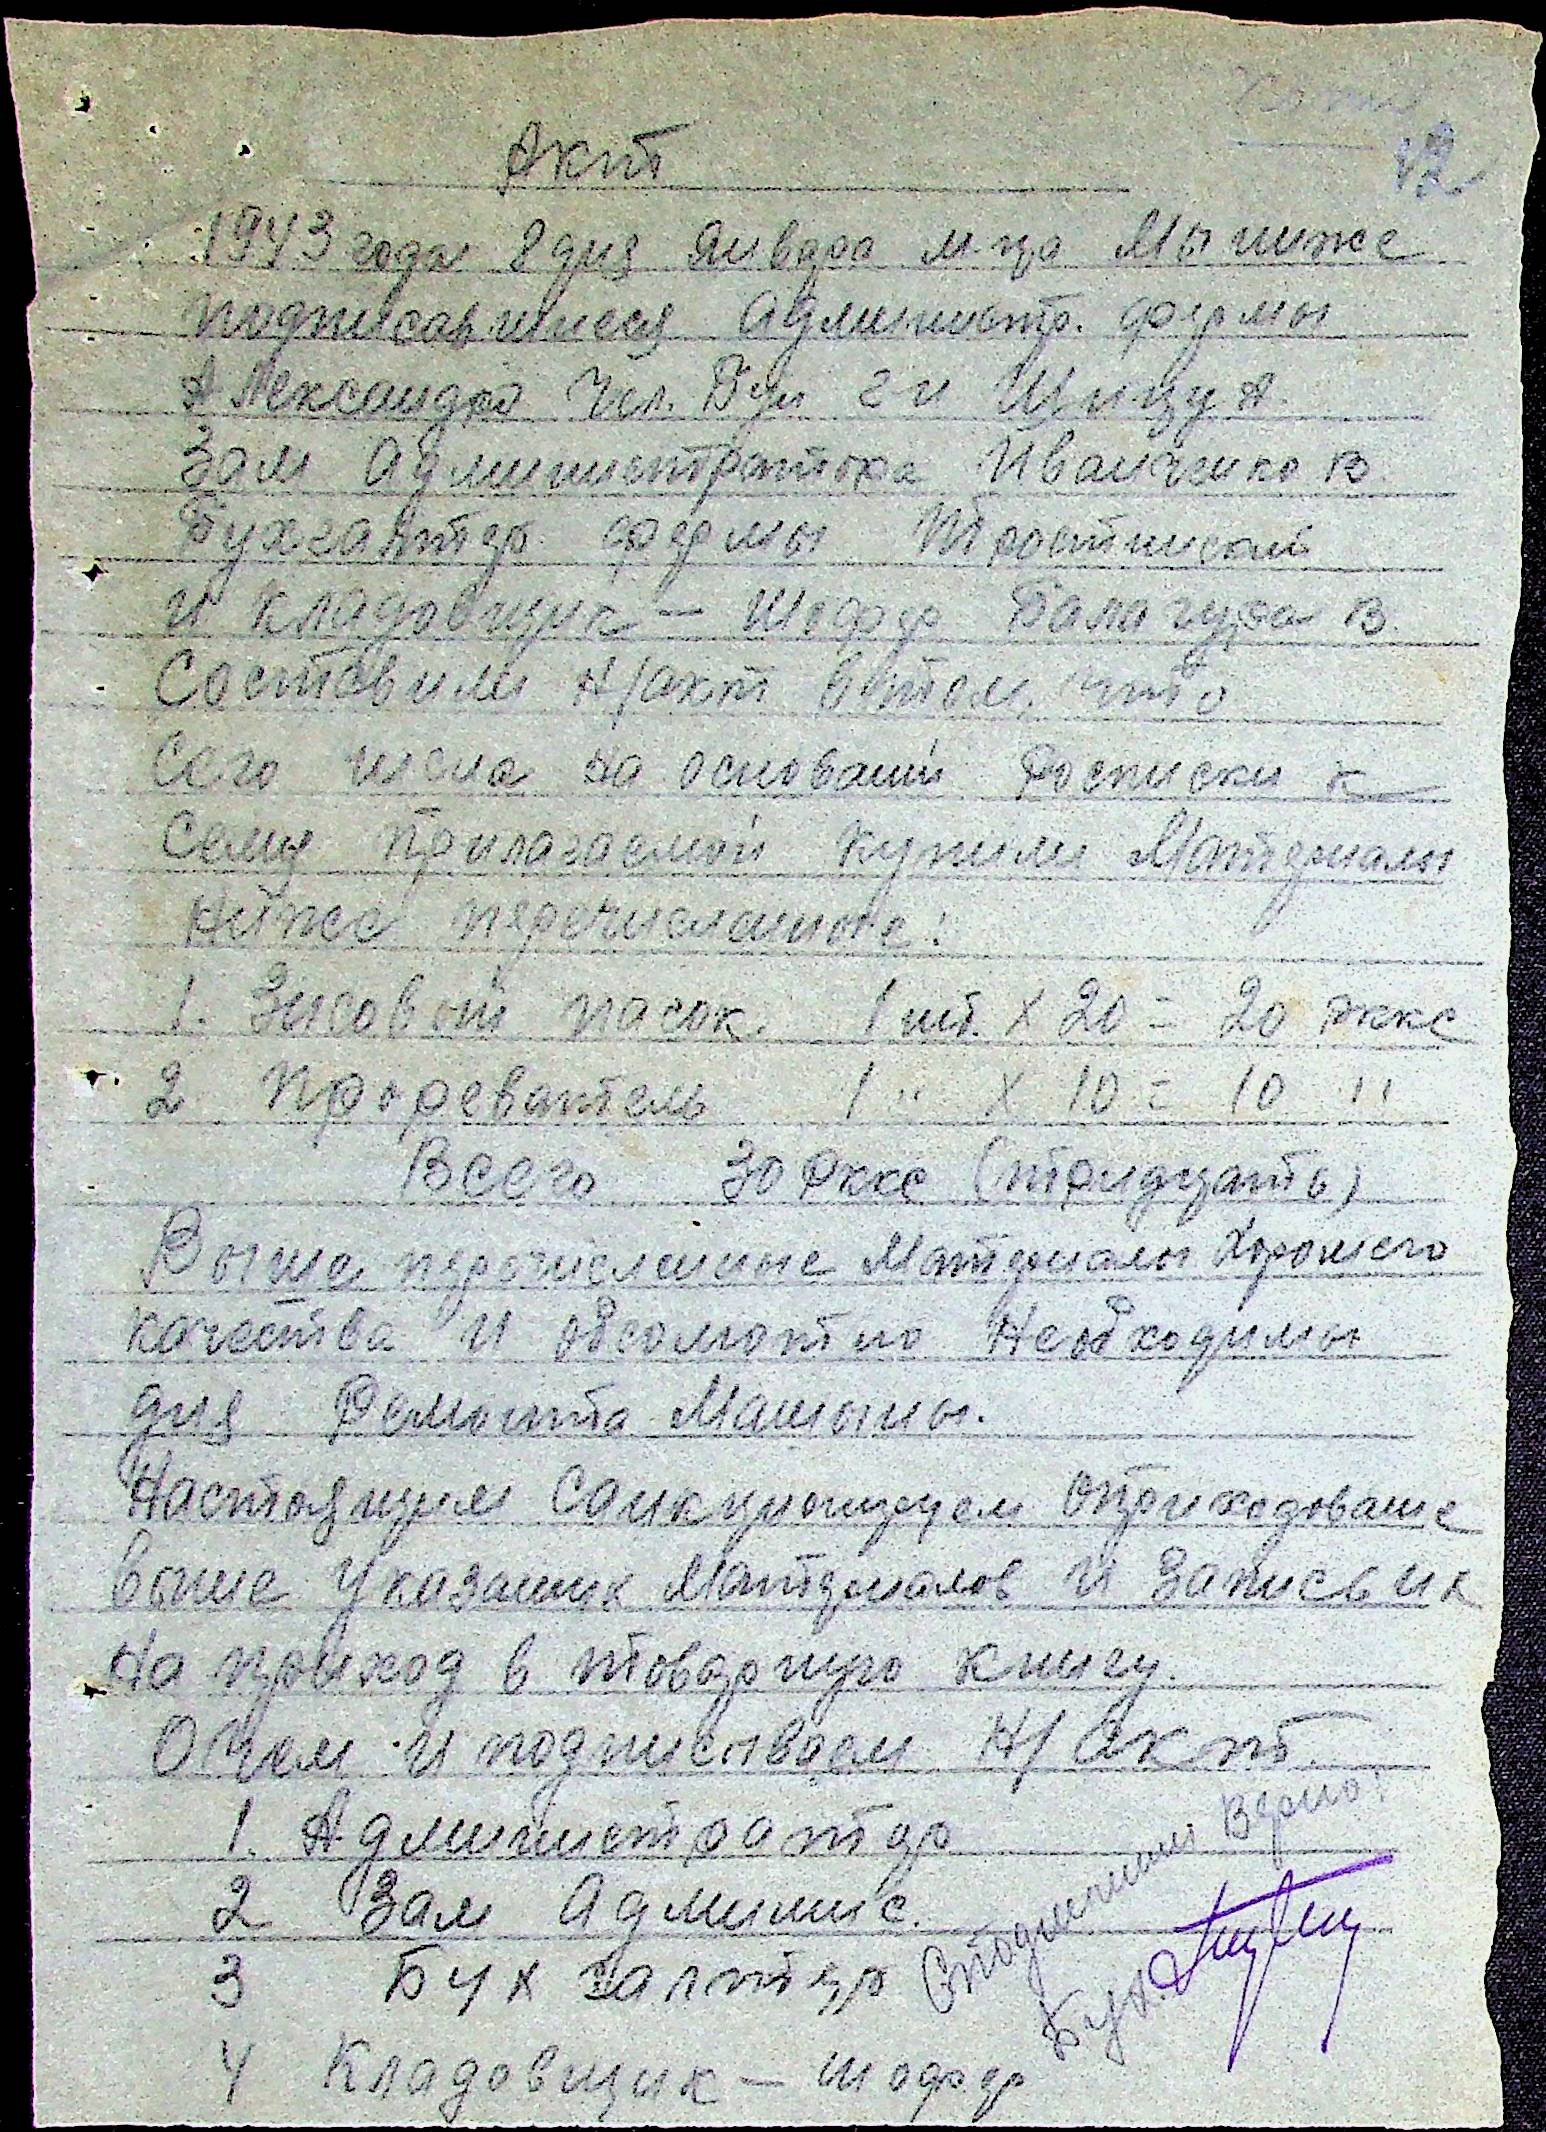 Копия
12
Акт
1943 года 8 дня января м-ца Мы ниже
подписавшиеся Администр. фермы
Александра Чел. Бул г-н Щицу А.
Зам Администратора Иванченко В.
Бухгалтер фермы Тростинсаль
и кладовщик – шофер Балагура В.
Составили н/акт в том, что
Сего числа на основаниі Росписки к
Сему прилагаемой купили Материалы
Ниже перечисленные:
1. Зисовый пасок. 1 шт. х 20 = 20 ркке
2 Прореватель 1 " х 10 = 10 "
Всего 30 Ркке (тридцать)
Выше перечисленные Материалы Хорошего
качества и обсолютно Необходимы
для Ремонта Машыны.
Настоящим Санкционируем оприходование
выше указаных Материалов и Запись их
На приход в товарную книгу.
О чем и подписываем Н/акт.
1. Администратор
2 Зам Админис.
3 Бухгалтер
4 Кладовщик – шофер
С подлинным Верно:
Бух.